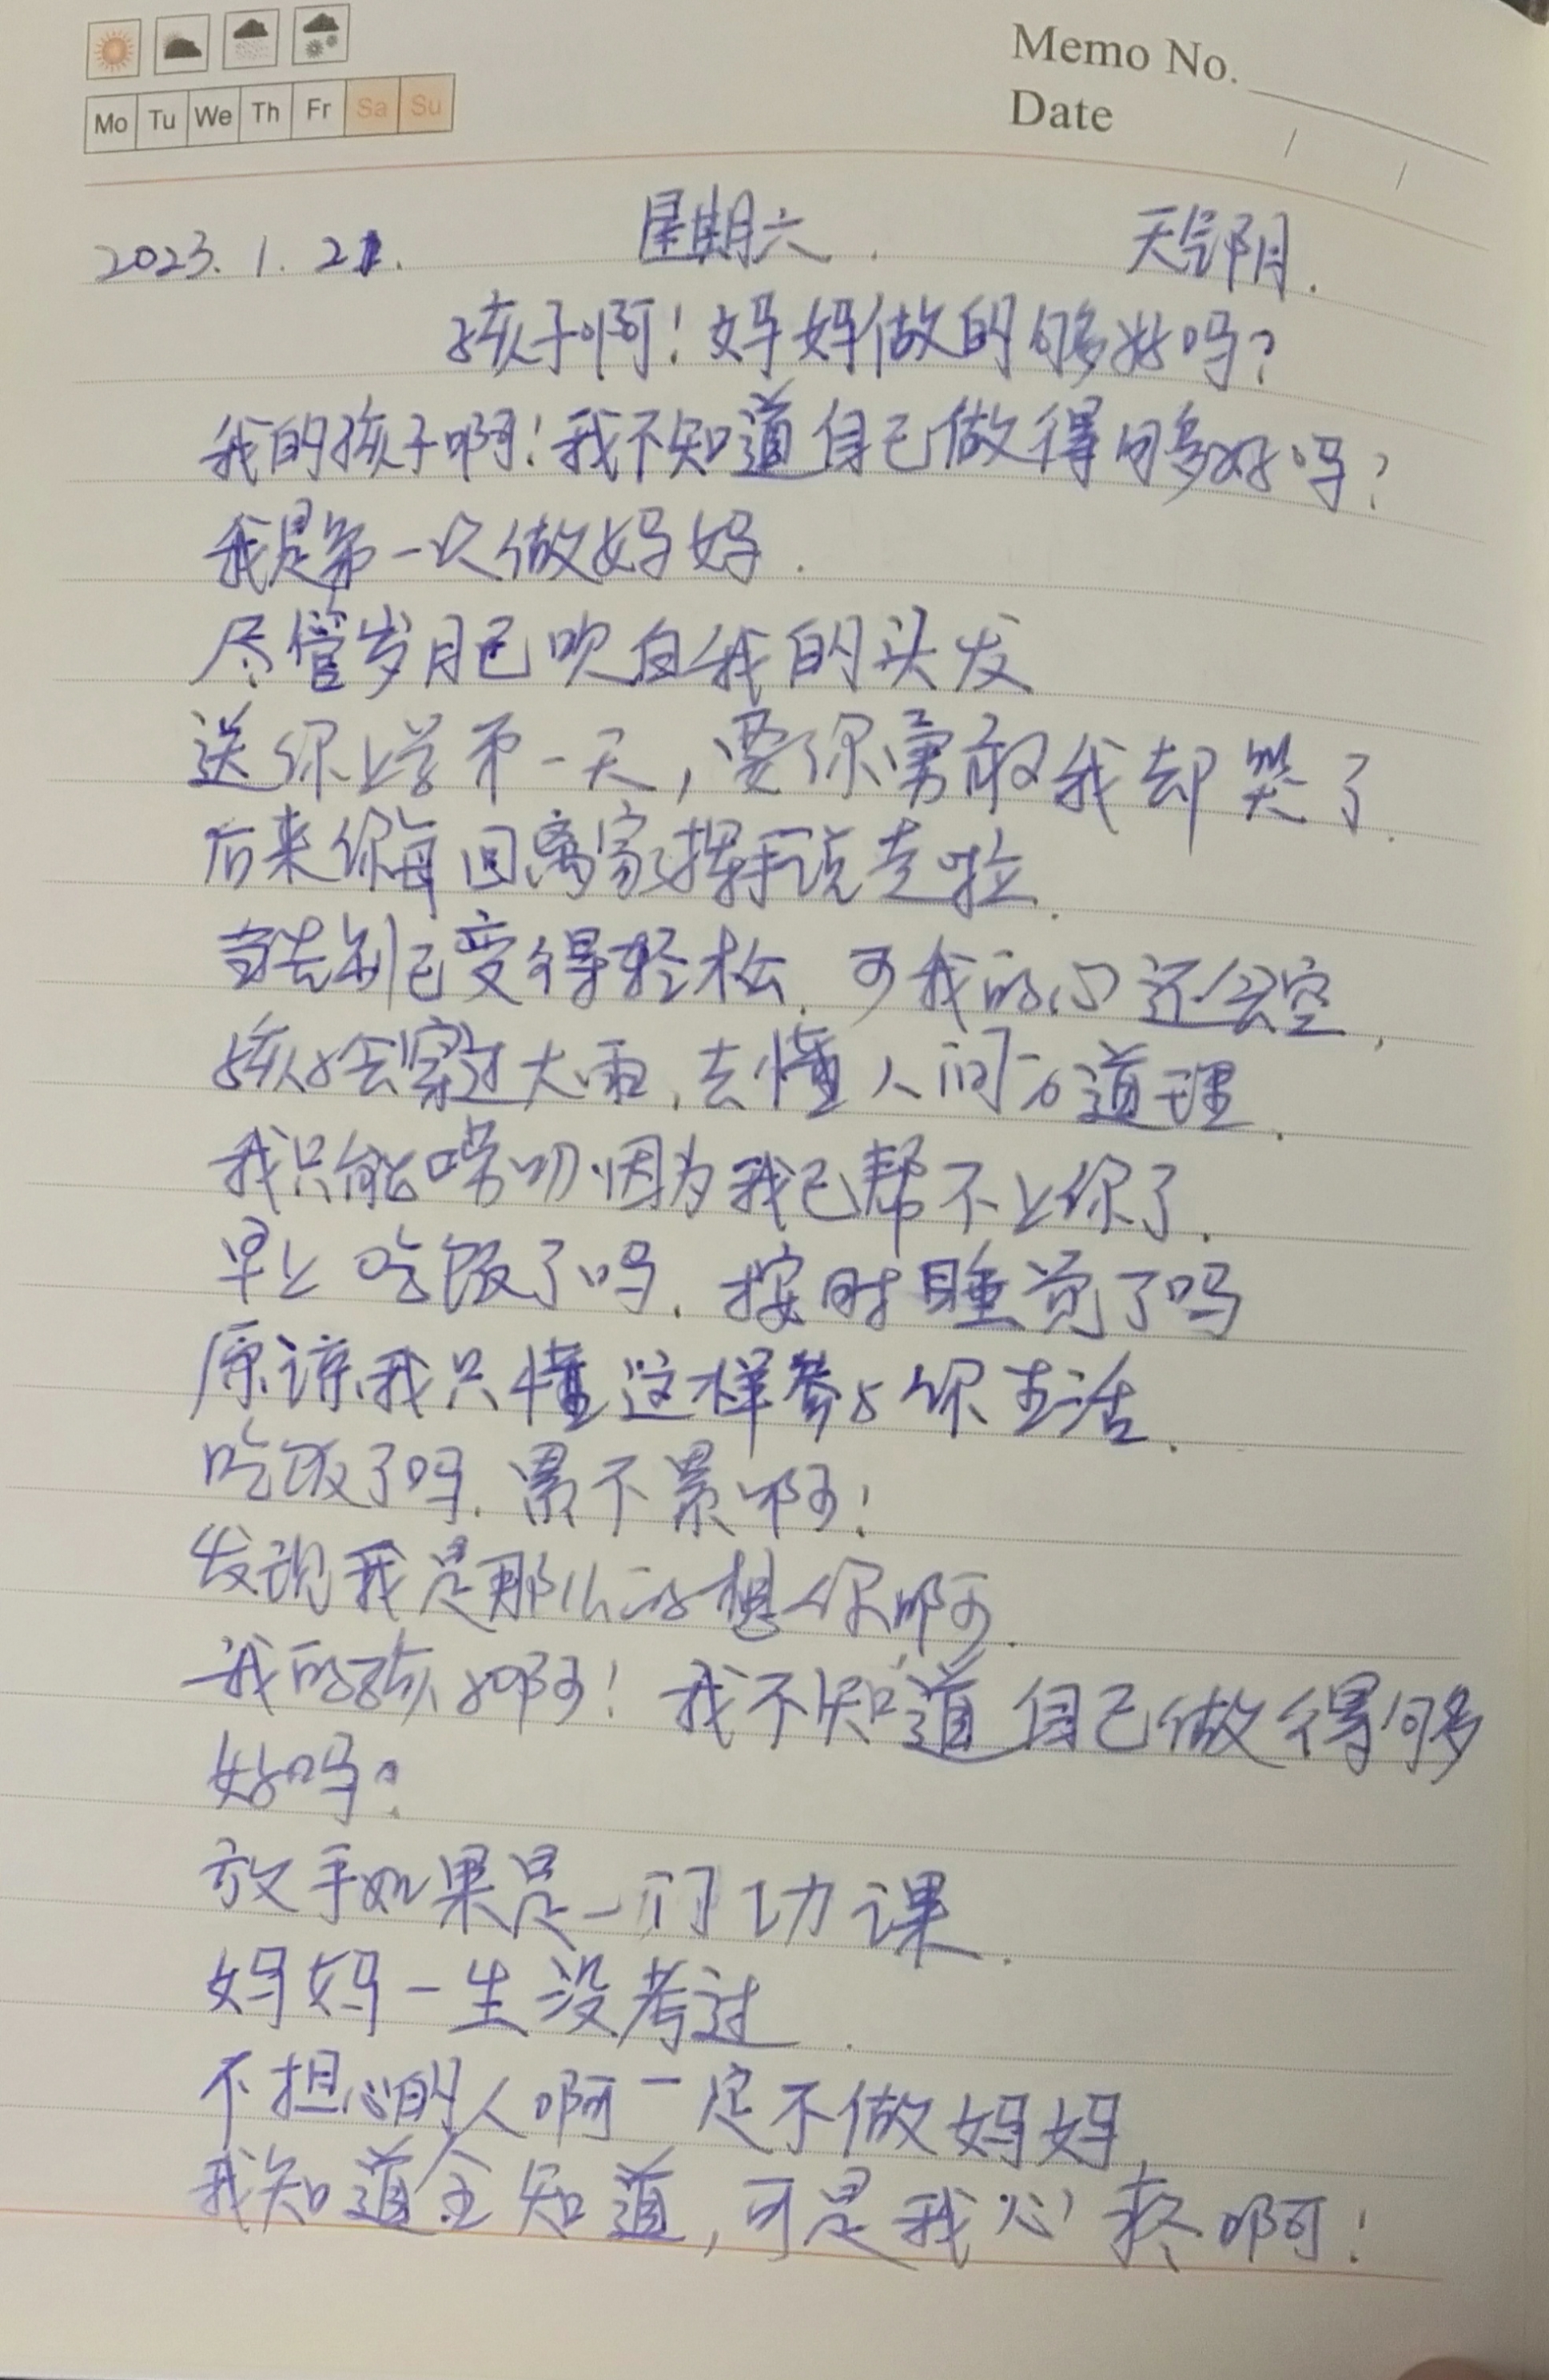 Memo No.
Mo Tu We Th Fr Sa Su
Date / /
2023.1.21. 星期六. 天气阴.
孩子啊!妈妈做的够好吗?
我的孩子啊!我不知道自己做得够好吗?
我是第一次做妈妈.
尽管岁月已吹白我的头发
送你上学第一天,要你勇敢我却哭了.
后来你每回离家挥手说走啦.
当告别已变得轻松.可我的心还会空.
孩子会穿过大雨.去懂人间的道理.
我只能唠叨.因为我已帮不上你了.
早上吃饭了吗.按时睡觉了吗
原谅我只懂这样参与你生活.
吃饭了吗.累不累啊!
发现我是那么的想你啊.
我的孩子啊!我不知道自己做得够
好吗?
放手如果是一门功课.
妈妈一生没考过.
不担心的人啊一定不做妈妈.
我知道全知道,可是我心疼啊!